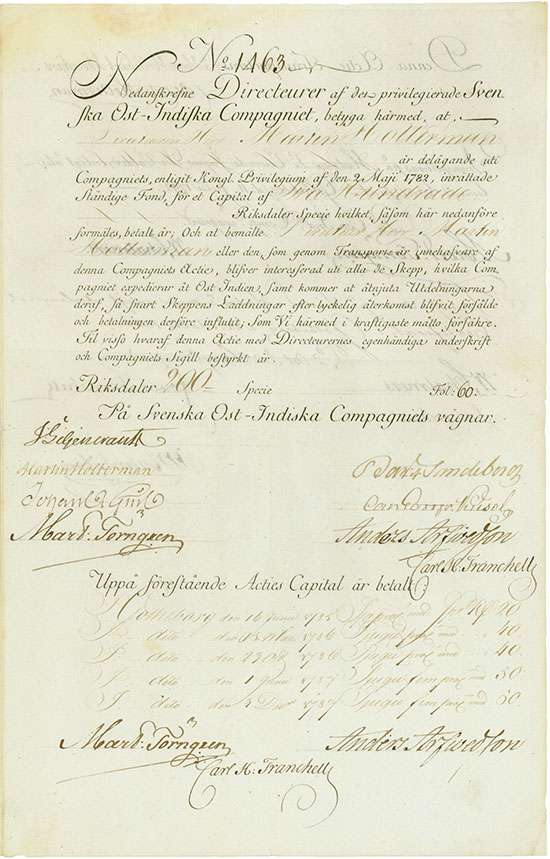 No 1463
Nedanskrefne Directeurer af det privilegierade Sven-
ska Ost-Indiska Compagniet, betyga härmed, at
Herr Martin Holterman
är delägande uti
Compagniets, enligit Kongl. Privilegium af den 2 Maji 1782, inrättade
Ständige Fond, för et Capital af Två Hundrade
Riksdaler Specie hvilket, såsom här nedanföre
förmäles, betalt är; Och at bemälte Herr Martin
Holterman eller den, som genom Transport är innehafvare af
denna Compagniets Actie, blifver interesserad uti alla de Skepp, hvilka Com-
pagniet expedierar åt Ost Indien, samt kommer at åtnjuta Utdelningarna
deraf, så snart Skeppens Laddningar efter lyckelig återkomst blifvit försålde
och betalningen derföre influtit; Som Vi härmed i kraftigaste måtto försäkre.
Til visso hvaraf denna Actie med Directeurernes egenhändiga underskrift
och Compagniets Sigill bestyrkt är.
Riksdaler 200 Specie Fol: 60.
På Svenska Ost-Indiska Compagniets vägnar.
Martin Holterman
Mart. Törngren Anders Arfwedson
Carl H. Franchell
Uppå förestående Acties Capital är betalt:
Götheborg den 16 1785 20
D. dito den 1786 40
D. dito den 1786 40
D. dito den 1 1787 50
D. dito den 1787 50
Mart. Törngren Anders Arfwedson
Carl H. Franchell